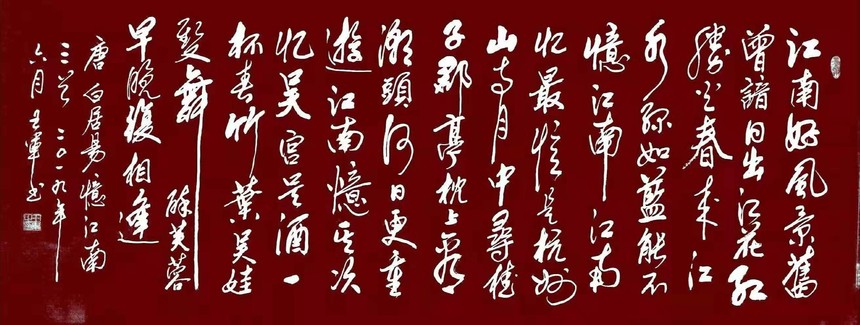 江南好風景舊
曾諳日出江花紅
勝火春來江
水綠如藍能不
憶江南江南
忆最忆是杭州
山寺月中尋桂
子郡亭枕上看
潮頭何日更重
遊江南憶其次
忆吴宫吴酒一
杯春竹葉吴娃
雙舞醉芙蓉
早晚復相逢
唐白居易憶江南
三首二〇一九年
六月軍书